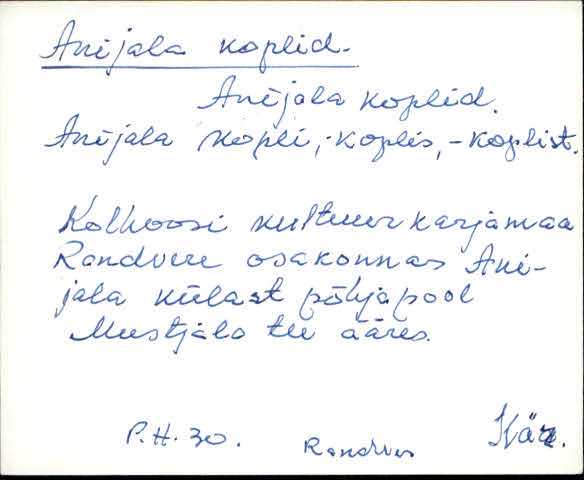 Anijala koplid.
Anijala koplid.
Anijala kopli, -koplis, -koplist.
Kolhoosi kultuurkarjamaa
Randvere osakonnas Ani-
jala külast põhjapool
Mustjala tee ääres.
P.H. 30. Randvere Kär.